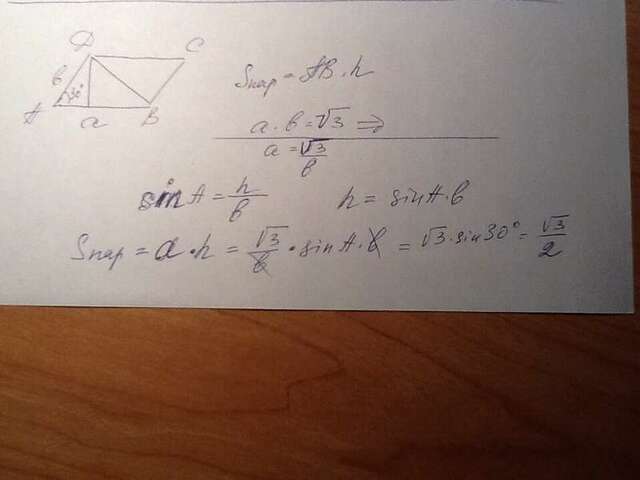 D C
в 30°
A a B
Sпар = AB · h
a · в = √3 ⇒
a = √3/в
sin A = h/в h = sin A · в
Sпар = a · h = √3/в · sin A · в = √3 · sin 30° = √3/2